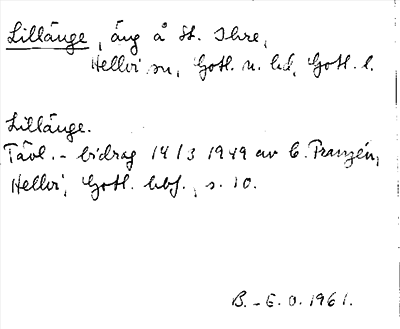 Lillänge, äng å St. Ihre,
Hellvi sn, Gotl. n. hd, Gotl. l.
Lillänge.
Tävl.-bidrag 14/3 1949 av C. Franzén,
Hellvi, Gotl. hbf., s. 10.
B.-E. O. 1961.